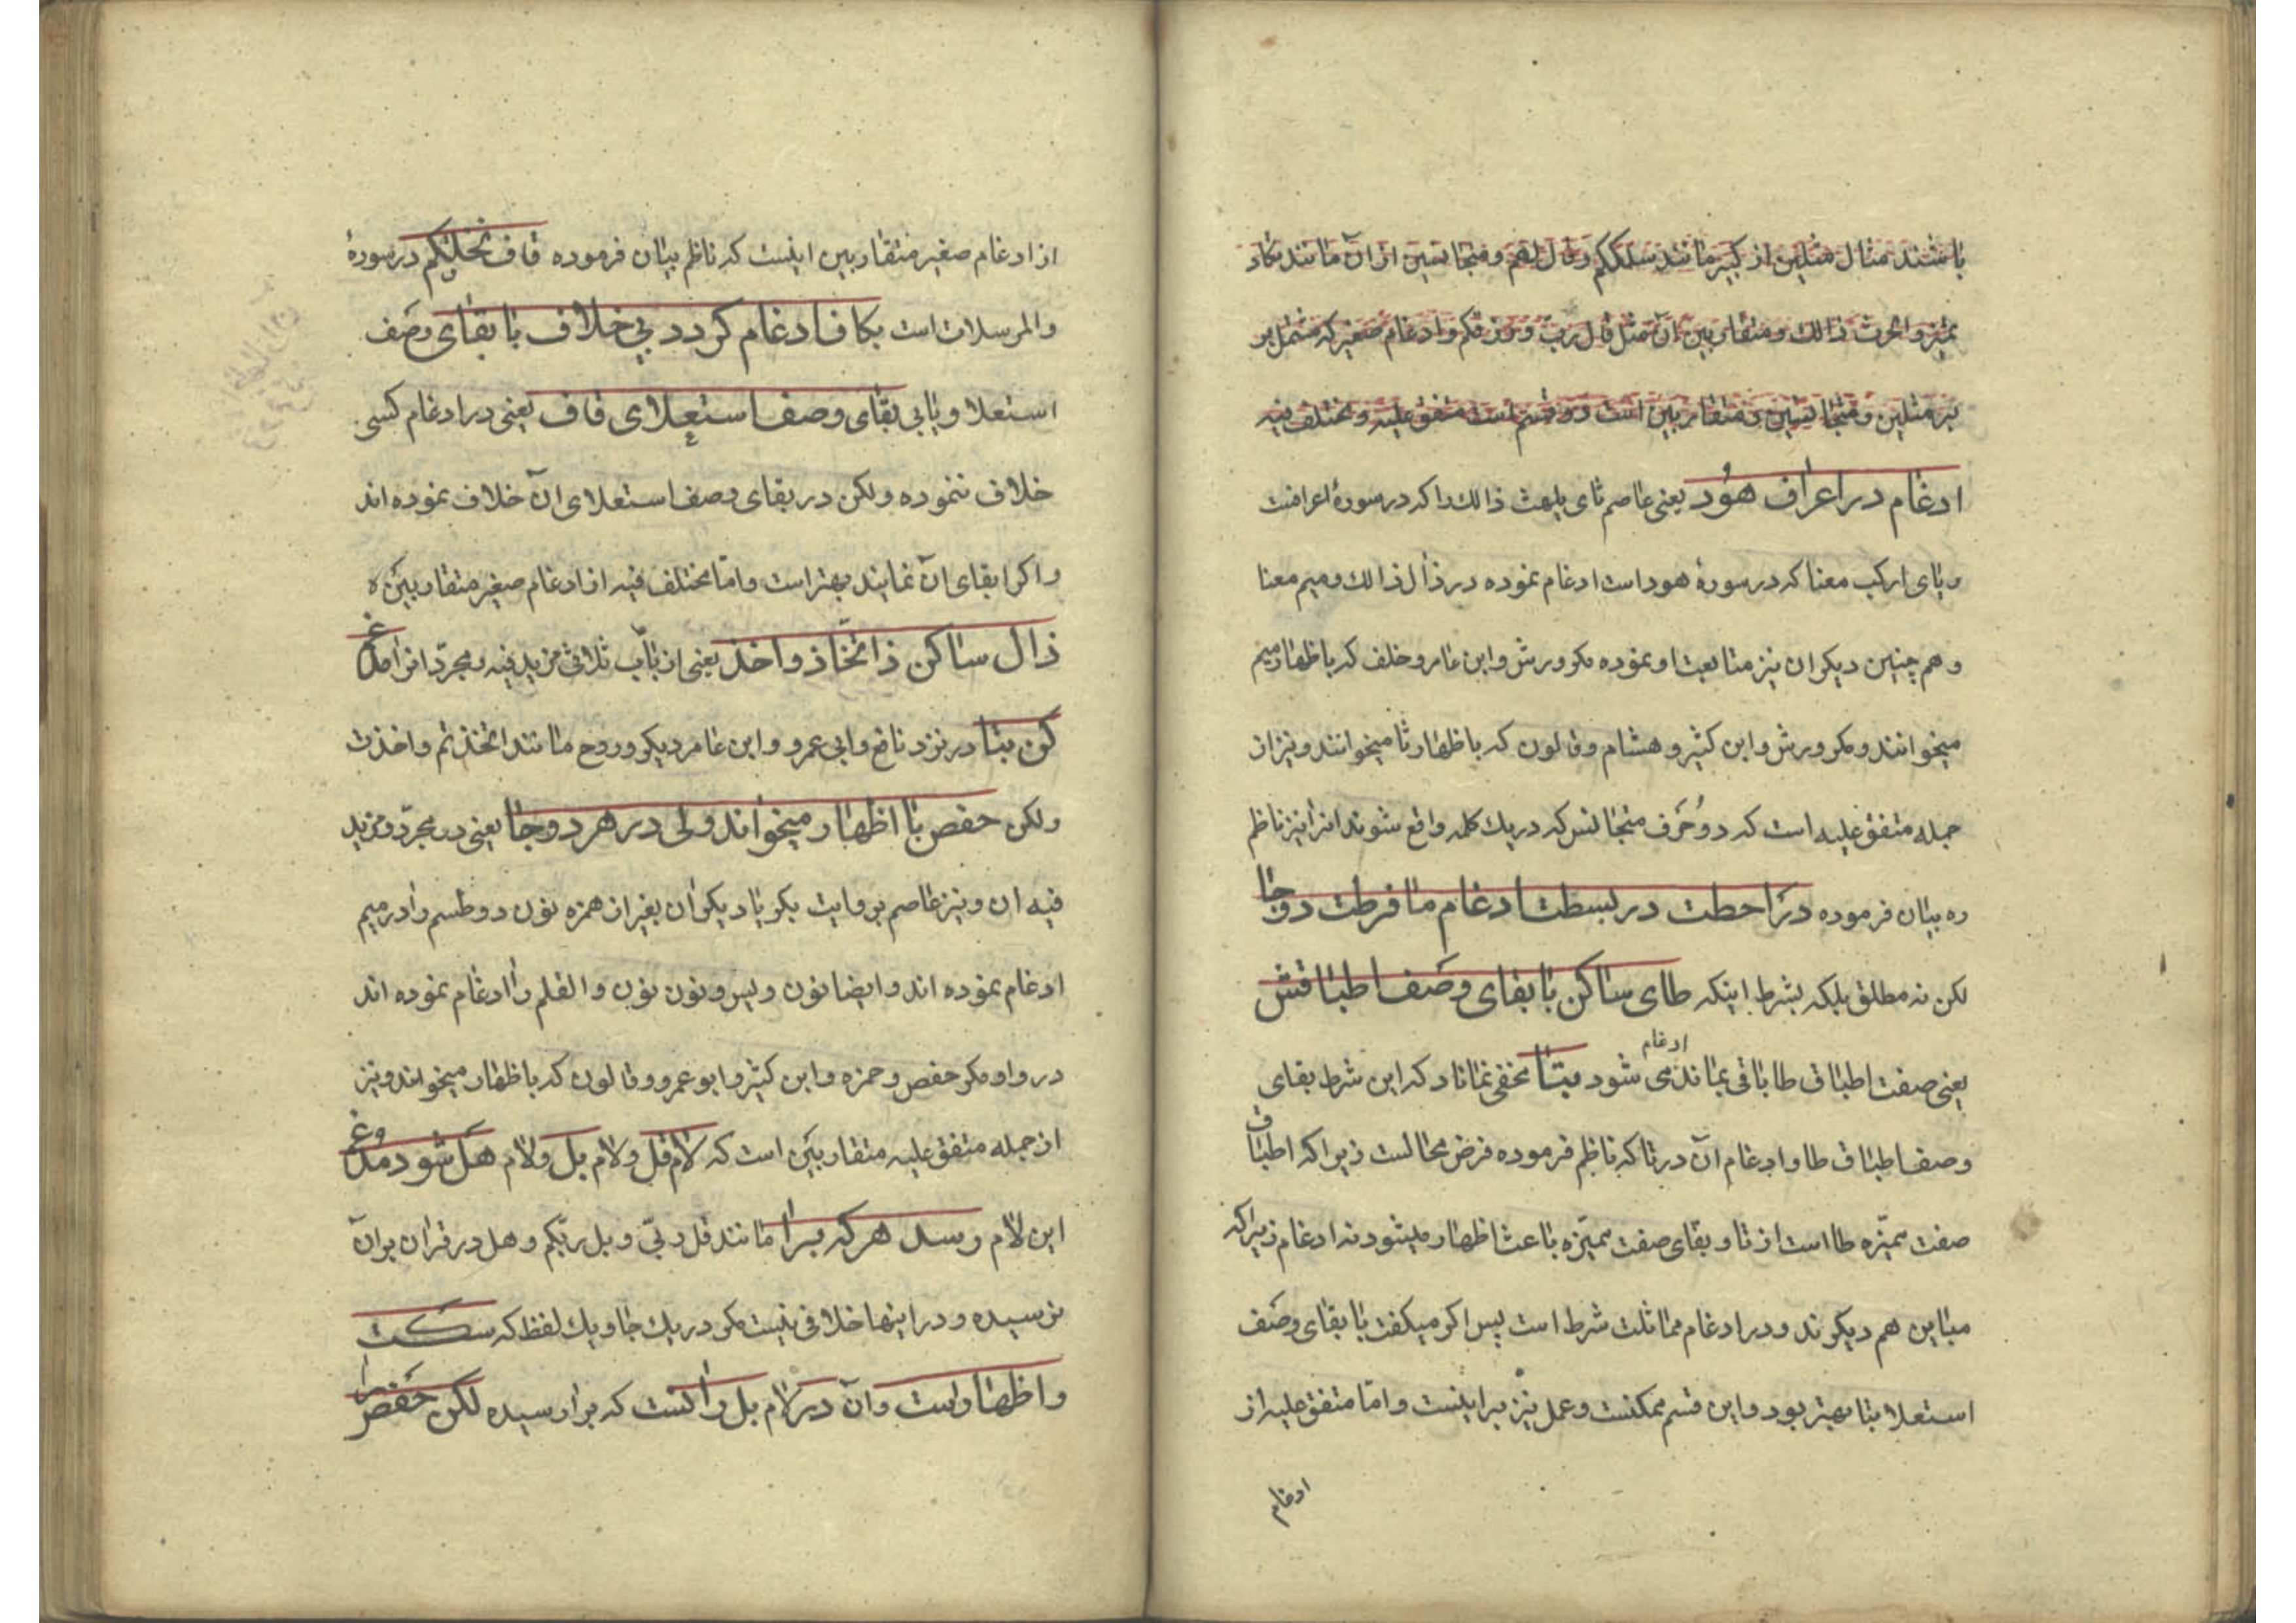 باشند مثال مثلین از کبیر مانند سلککم وقال لهم ومتجانسین از ان مانند تکاد
تمیز والحرث ذالك ومتقاربین ان مثل قال رب ونرزقکم وادغام صغیر که مشتمل بر
بر مثلین ومتجانسین ومتقاربین است دو قسم است متفق علیه ومختلف فیه
ادغام در اعراف هود یعنی عاصم ثای یلهث ذالك را که در سورهٔ اعرافست
وبای ارکب معنا که در سورهٔ هود است ادغام نموده در ذال ذالك ومیم معنا
وهم چنین دیکران نیز متابعت او نموده مکر ورش وابن عامر وخلف که باظهار میم
میخوانند ومکر ورش وابن کثیر وهشام وقالون که باظهار ثا میخوانند ونیز از
جمله متفق علیه است که دو حرف متجانس که در یك کلمه واقع شوند انرا نیز ناظم
ره بیان فرموده در احطت در بسطت ادغام ما فرطت دوجا
لکن نه مطلق بلکه بشرط اینکه طای ساکن با بقای وصف اطباقش
یعنی صفت اطباق طا باقی بماند ادغام می شود بتا مخفی نماناد که این شرط بقای
وصف اطباق طا وادغام آن در تا که ناظم فرموده فرض محالست زیرا که اطباق
صفت ممیّزه طا است از تا وبقای صفت ممیّزه باعث اظهار میشود نه ادغام زیرا که
مباین هم دیکرند ودر ادغام مماثلت شرط است پس اکر میکفت با بقای وصف
استعلا بتا بهتر بود واین قسم ممکنست وعمل نیز براینست وامّا متفق علیه از
ادغام
از ادغام صغیر متقاربین اینست که ناظم بیان فرموده قاف نخلقکم در سورهٔ
والمرسلات است بکاف ادغام کردد بی خلاف با بقای وصف
استعلا ویا بی بقای وصف استعلای قاف یعنی در ادغام کسی
خلاف ننموده ولکن در بقای وصف استعلای آن خلاف نموده اند
واکر ابقای آن نمایند بهتر است وامّا مختلف فیه از ادغام صغیر متقاربین
ذال ساکن ز اتّخاذ واخذ یعنی از باب ثلاثی مزید فیه ومجرّد انرا مدغم
کن بتا در نزد نافع وابی عمرو وابن عامر دیکر وروح مانند اتخذتم واخذت
ولکن حفص با اظهار میخواند ولی در هر دو جا یعنی در مجرّد ومزید
فیه ان ونیز عاصم بروایت بکر با دیکران بغیر از همزه نون دو طسم را در میم
ادغام نموده اند وایضا نون ویس ونون نون والقلم را ادغام نموده اند
در واو مکر حفص وحمزه وابن کثیر وابو عمرو وقالون که باظهار میخوانند ونیز
از جمله متفق علیه متقاربین است که لام قل ولام بل ولام هل شود مدغم
این لام رسد هر که برا مانند قل ربّی وبل ربّکم وهل در قران بر آن
نرسیده ودر اینها خلافی نیست مکر در یك جا ویك لفظ که سکت
واظهار است وآن در لام بل راکست که برا رسیده لکن حفص را